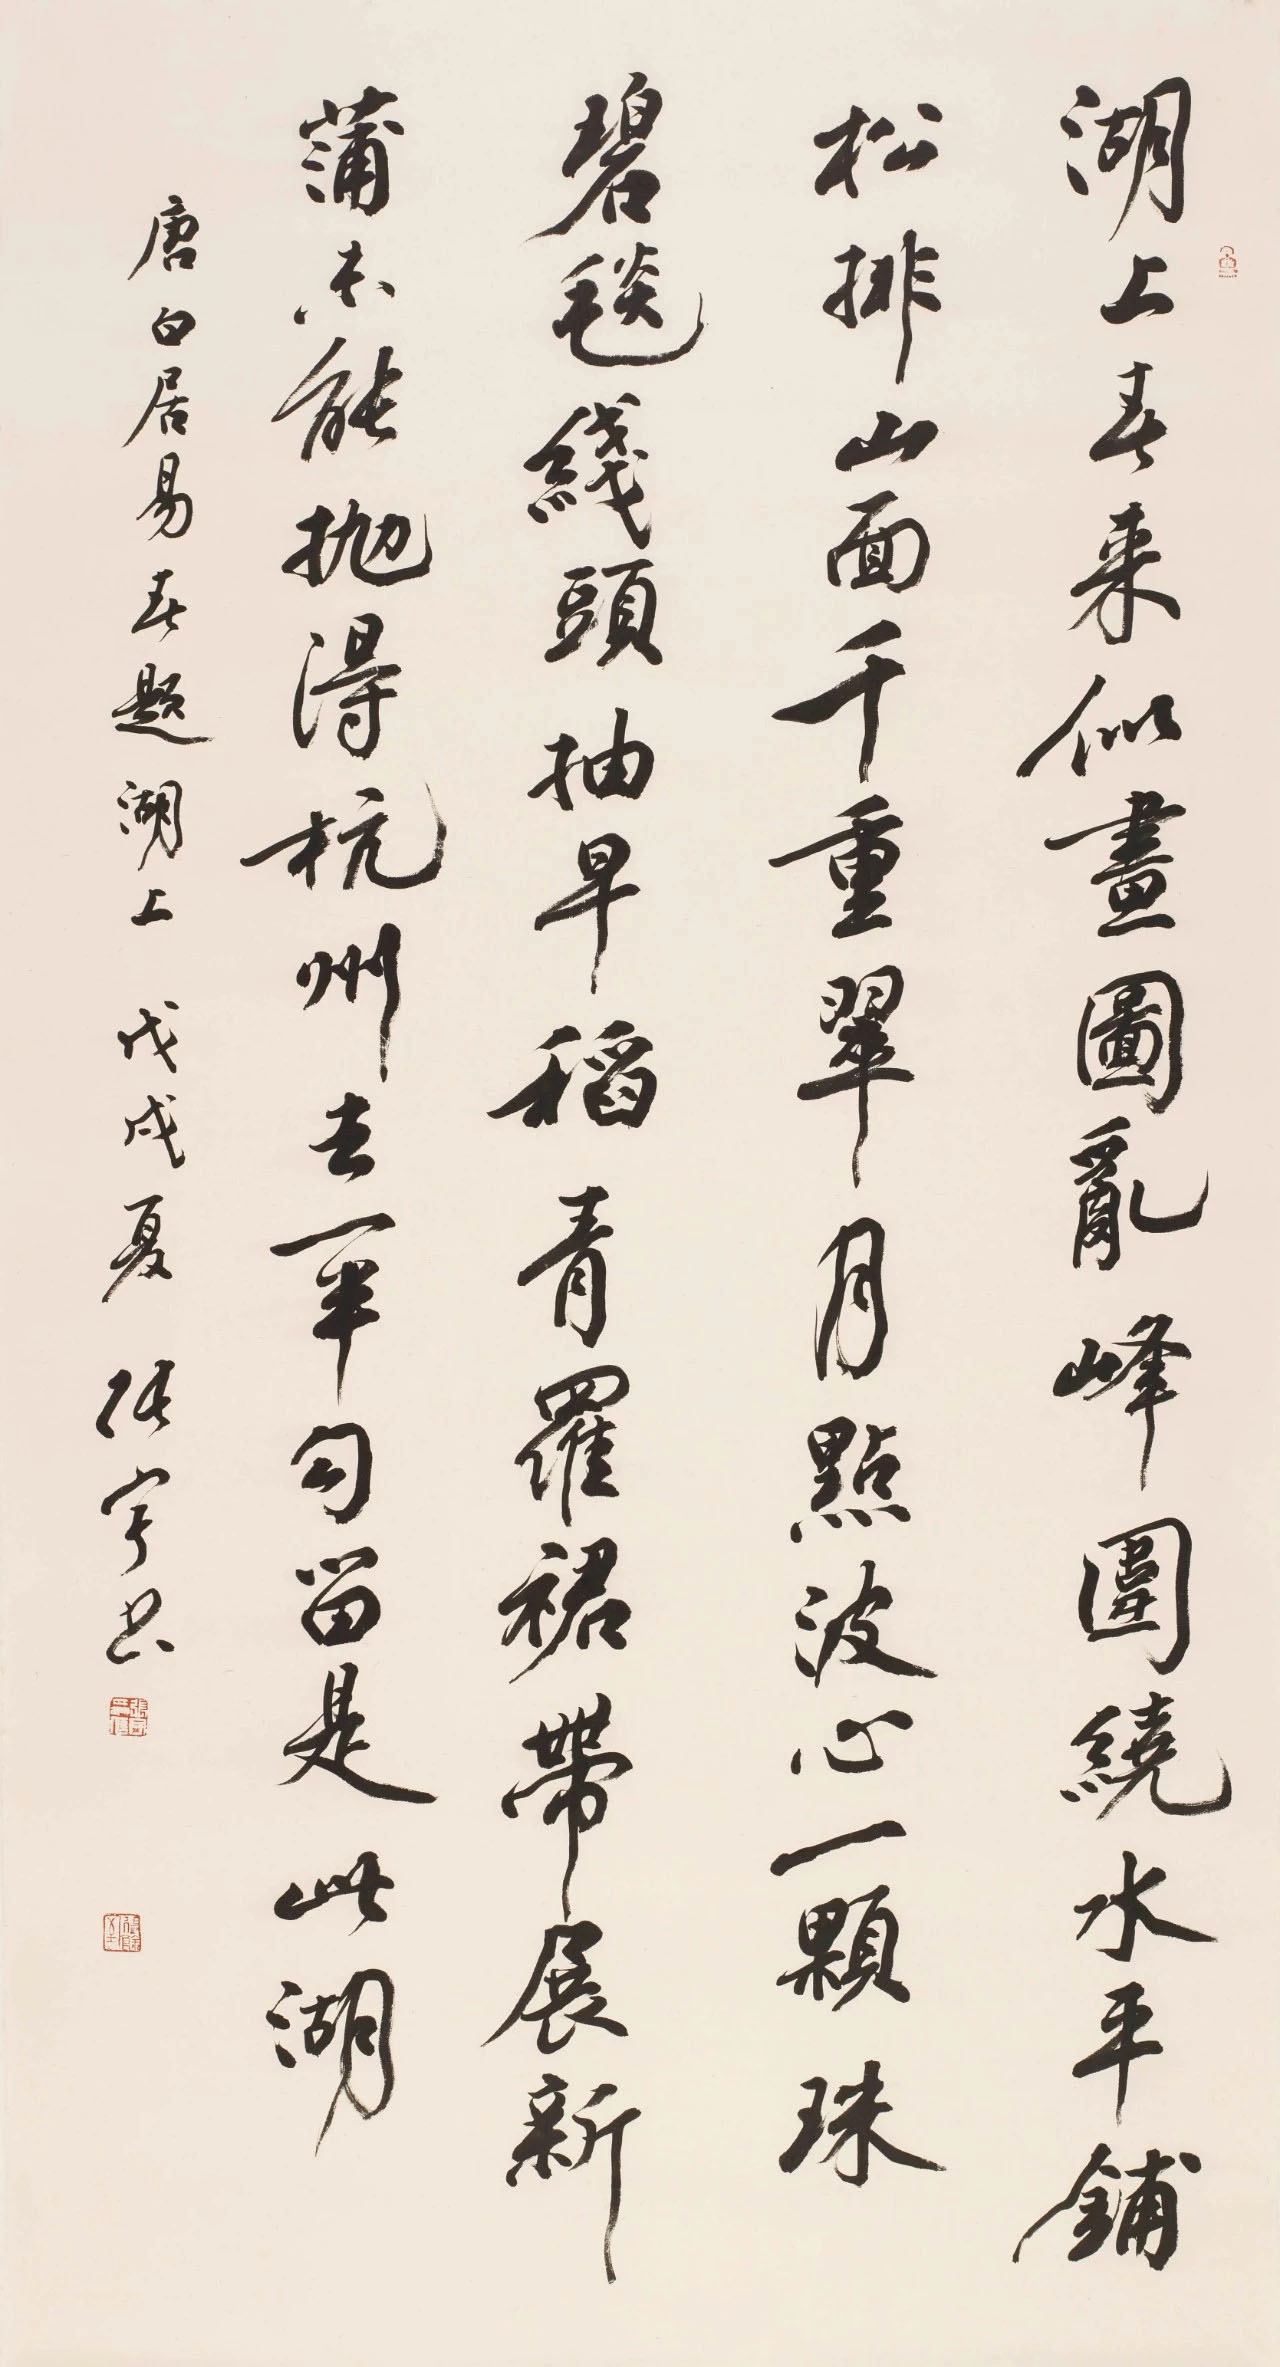 湖上春来似畫圖亂峰圍繞水平鋪
松排山面千重翠月點波心一顆珠
碧毯綫頭抽早稻青羅裙帶展新
蒲未能拋得杭州去一半勾留是此湖
唐白居易春題湖上 戊戌夏 張宇书